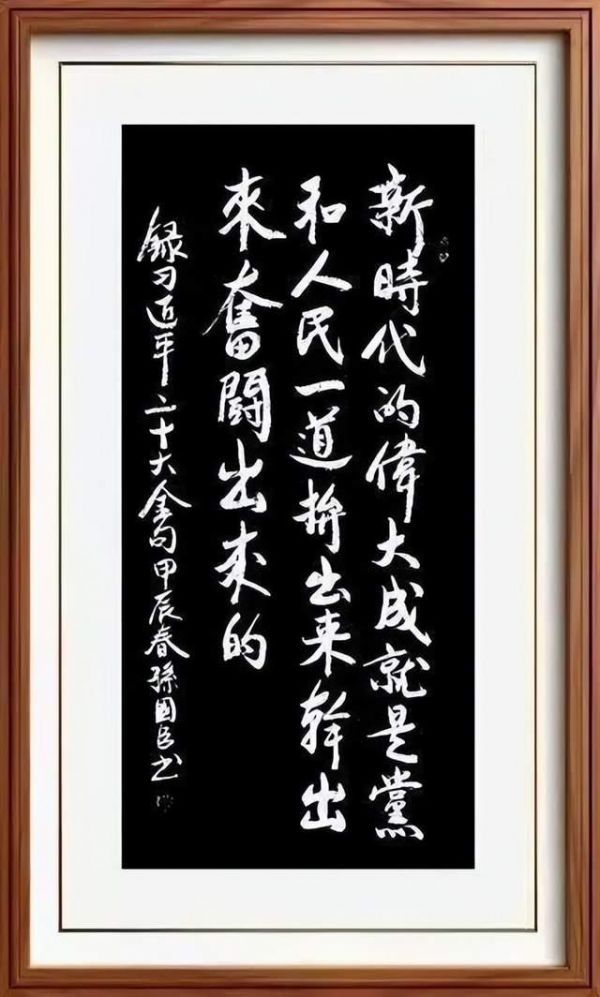 新時代的偉大成就是黨
和人民一道拚出来幹出
來奮鬪出来的
録习近平二十大金句甲辰春孫國臣书